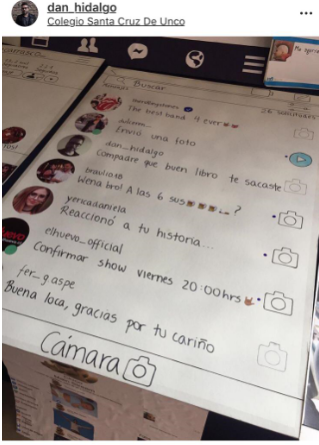 dan_hidalgo
Colegio Santa Cruz De Unco
Buscar
The best band 4 ever
Envió una foto
dan_hidalgo
Compadre que buen libro te sacaste
braulio18
Wena bro! A las 6 sus ?
yericadaniela
Reaccionó a tu historia...
elhuevo_official
Confirmar show viernes 20:00hrs
fer_gaspe
Buena loca, gracias por tu cariño
Cámara